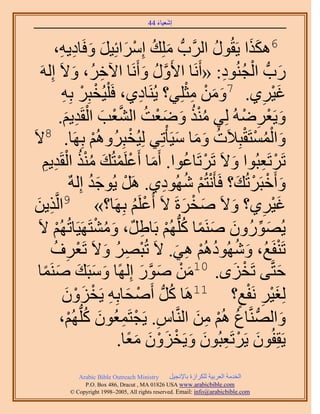 إشعياء 44
6هكَذَا يَقُولُ الرَّبُّ مَلِكُ إِسْرَائِيلَ وَفَادِيهِ،
رَبُّ الْجُنُودِ: «أَنَا الأَوَّلُ وَأَنَا الآخِرُ، وَلاَ إِلهَ
غَيْرِي. 7وَمَنْ مِثْلِي؟ يُنَادِي، فَلْيُخْبِرْ بِهِ
وَيَعْرِضْهُ لِي مُنْذُ وَضَعْتُ الشَّعْبَ الْقَدِيمَ.
وَالْمُسْتَقْبِلاَتُ وَمَا سَيَأْتِي لِيُخْبِرُوهُمْ بِهَا. 8لاَ
تَرْتَعِبُوا وَلاَ تَرْتَاعُوا. أَمَا أَعْلَمْتُكَ مُنْذُ الْقَدِيمِ
وَأَخْبَرْتُكَ؟ فَأَنْتُمْ شُهُودِي. هَلْ يُوجَدُ إِلهٌ
غَيْرِي؟ وَلاَ صَخْرَةَ لاَ أَعْلَمُ بِهَا؟» 9الَّذِينَ
يُصَوِّرُونَ صَنَمًا كُلُّهُمْ بَاطِلٌ، وَمُشْتَهَيَاتُهُمْ لاَ
تَنْفَعُ، وَشُهُودُهُمْ هِيَ. لاَ تُبْصِرُ وَلاَ تَعْرِفُ
حَتَّى تَخْزَى. 10مَنْ صَوَّرَ إِلهًا وَسَبَكَ صَنَمًا
لِغَيْرِ نَفْعٍ؟ 11هَا كُلُّ أَصْحَابِهِ يَخْزَوْنَ
وَالصُّنَّاعُ هُمْ مِنَ النَّاسِ. يَجْتَمِعُونَ كُلُّهُمْ،
يَقِفُونَ يَرْتَعِبُونَ وَيَخْزَوْنَ مَعًا.
Arabic Bible Outreach Ministry الخدمة العربية للكرازة بالإنجيل
P.O. Box 486, Dracut , MA 01826 USA www.arabicbible.com
© Copyright 1998-2005, All rights reserved. Email: info@arabicbible.com